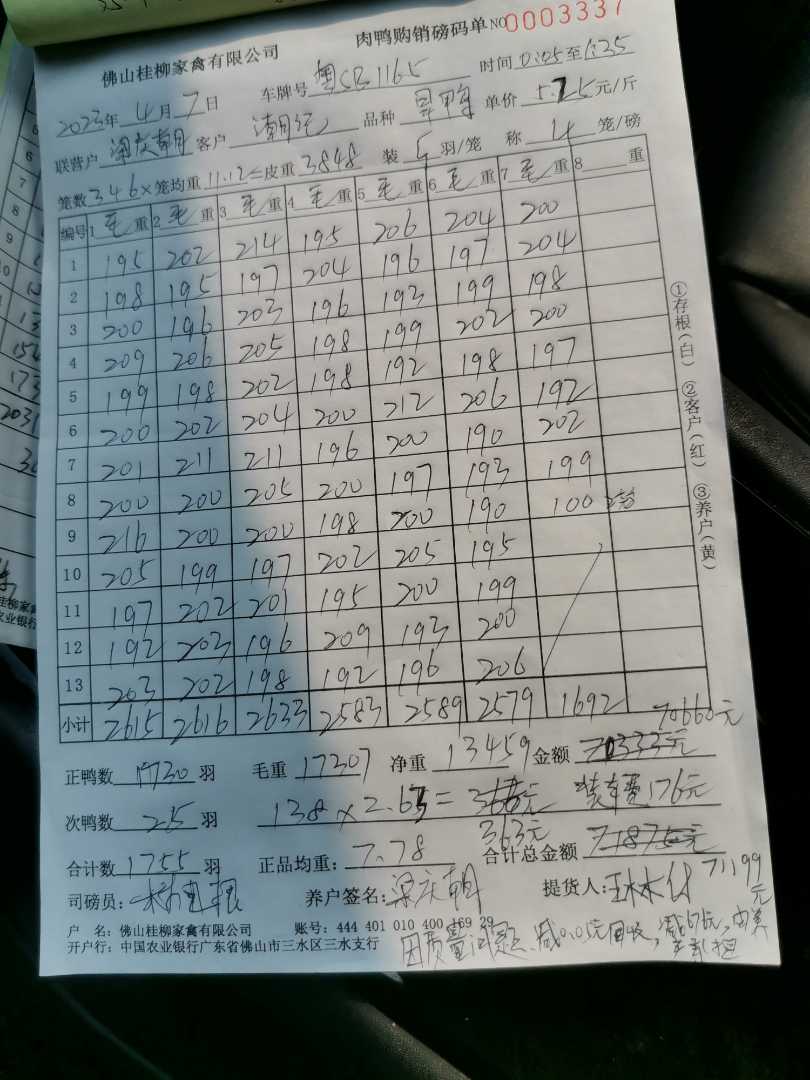 佛山桂柳家禽有限公司 肉鸭购销磅码单 NO 0003337
2023年 4月 7日 车牌号 1165 时间 0:05至1:35
联营户 梁庆朝 客户 品种 单价 5.25 元/斤
笼数 346 ×笼均重 11.12 =皮重 3848 装 5 羽/笼 称 4 笼/磅
编号 1 毛 重 2 毛 重 3 毛 重 4 毛 重 5 毛 重 6 毛 重 7 毛 重 8 重
1 195 202 214 195 206 204 200
2 198 195 197 204 196 197 204
3 200 196 203 196 193 199 198
4 209 206 205 198 199 202 200
5 199 198 202 198 192 198 197
6 200 202 204 200 212 206 192
7 201 211 211 196 200 190 202
8 200 200 205 200 197 193 199
9 216 200 200 198 200 190 100
10 205 199 197 202 205 195
11 197 202 201 195 200 199
12 192 203 196 209 193 200
13 203 202 198 192 196 206
小计 2615 2616 2633 2583 2589 2579 1692
70660元
正鸭数 1730 羽 毛重 17307 净重 13459 金额 71333元
次鸭数 25 羽 138 × 2.63 = 装车费176元
363元
合计数 1755 羽 正品均重: 7.78 合计总金额 71875元
71199元
司磅员: 养户签名: 梁庆朝 提货人:
户 名: 佛山桂柳家禽有限公司 账号: 444 401 010 400 169 29
开户行: 中国农业银行广东省佛山市三水区三水支行
因质量问题、减0.05元回收,
①存根(白) ②客户(红) ③养户(黄)